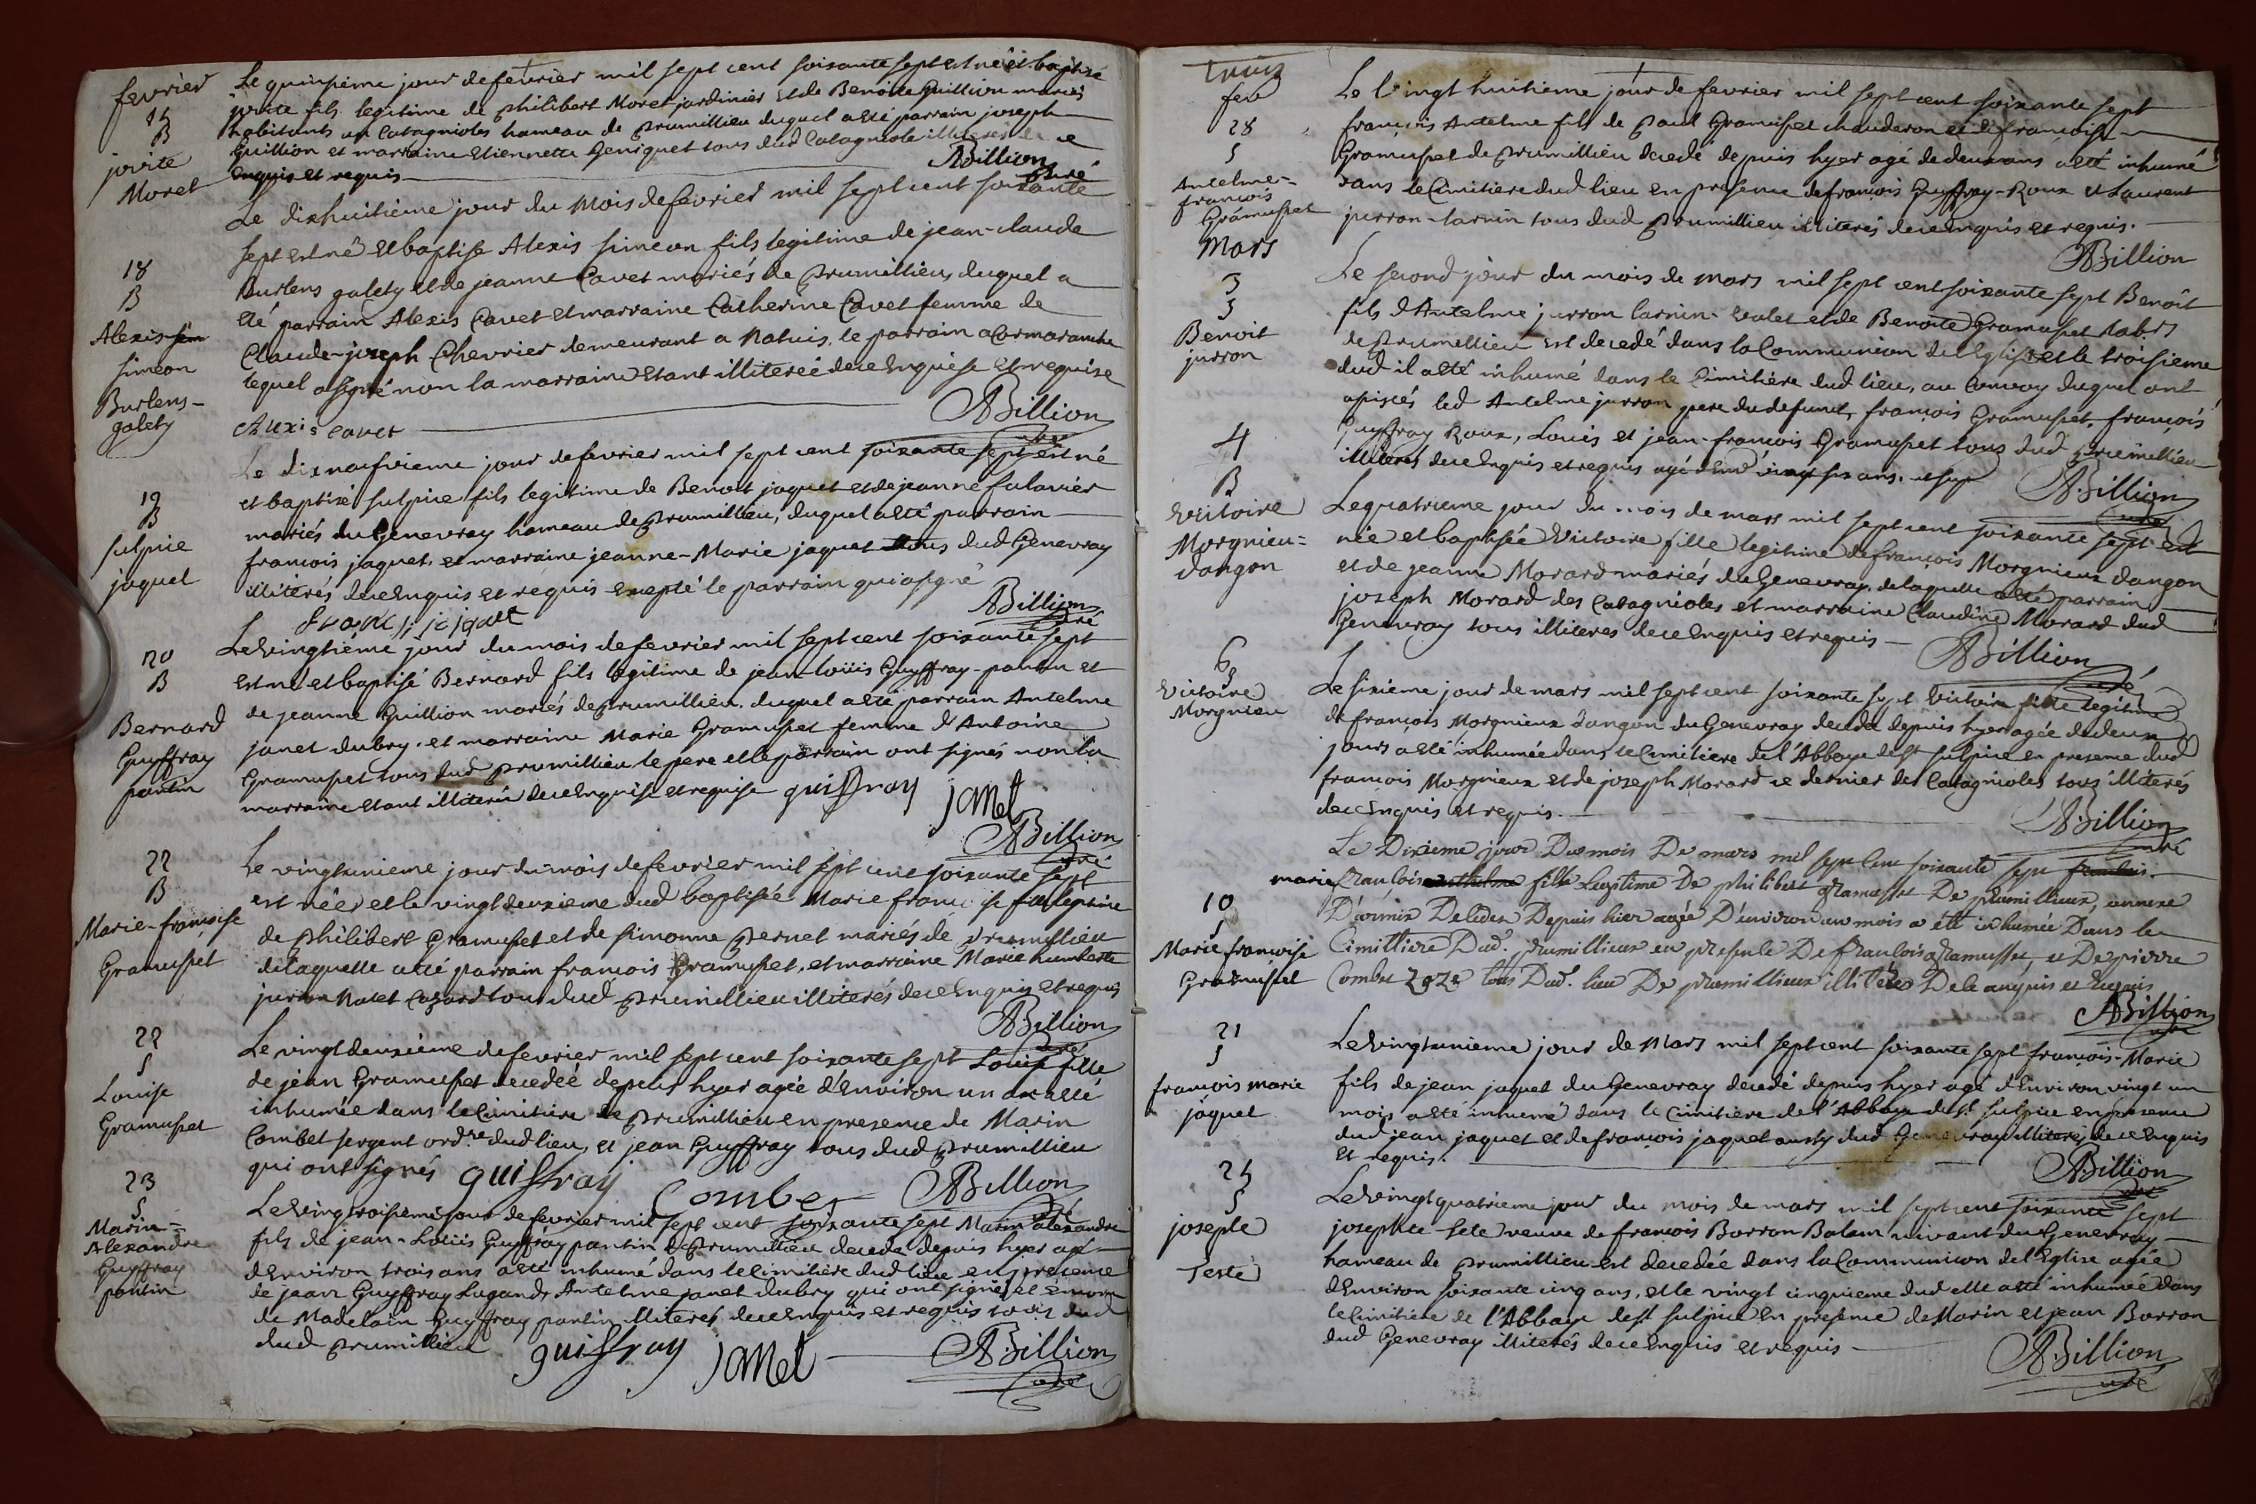 fevrier
15
B
jovite
Moret
Le quinsieme jour de fevrier mil sept cent soixante sept est né et baptisé
jovite fils legitime de philibert Moret jardinier et de Benoite Guillion mariés
habitants aux Catagnioles hameau de prumillieu duquel a eté parrain joseph
Guillion et marraine Etiennette Geniquet tous dud Catagniole illiteres de ce
Enquis et requis
ABillion
curé
18
B
Alexis
simeon
Burlens-
galety
Le dixhuitième jour du Mois de fevrier mil sept cent soixante
sept est né et baptisé Alexis simeon fils legitime de jean-claude
Burlens galety et de jeanne Cavet mariés de prumillieu, duquel a
eté parrain Alexis Cavet et marraine Catherine Cavet femme de
Claude-joseph Chevrier demeurant a Natuis, le parrain a Cormaranche
lequel a signé non la marraine Etant illiterée de ce Enquise et requise
Alexis cavet
ABillion
curé
19
B
sulpice
jaquet
Le dix neufvieme jour de fevrier mil sept cent soixante sept est né
et baptisé sulpice fils legitime de Benoit jaquet et de jeanne falavier
mariés du Genevray hameau de prumillieu, duquel a eté parrain
francois jaquet, et marraine jeanne-Marie jaquet tous dud Genevray
illiterés de ce Enquis et requis Excepté le parrain qui a signé
ABillion
curé
20
B
Bernard
Guyffray
pantin
Le vingtième jour du mois de fevrier mil sept cent soixante sept
est né et baptisé Bernard fils legitime de jean-louis Guyffray-pantin et
de jeanne Guillion mariés de prumillieu, duquel a eté parrain Antelme
janet dubry, et marraine Marie Gramuset femme d'Antoine
Gramuset tous dud prumillieu le pere et le parrain ont signés non la
marraine Etant illiterée de ce Enquise et requise guiffray janet
ABillion
curé
22
B
Marie-francoise
Gramuset
Le vingtunieme jour du mois de fevrier mil sept cent soixante sept
est née et le vingt deuxieme dud baptisée Marie francoise fille legitime
de philibert Gramuset et de simonne pernet mariés de prumillieu
de laquelle a eté parrain francois Gramuset, et marraine Marie humberte
jurron Natet tous dud prumillieu illiterés de ce Enquis et requis
ABillion
curé
22
S
Louise
Gramuset
Le vingt deuxiéme de fevrier mil sept cent soixante sept Louise fille
de jean Gramuset decedée depuis hyer agée d'Environ un an a eté
inhumée dans le Cimitiere de prumillieu en presence de Marin
Combet sergent ord.re dud lieu, et jean Guyffray tous dud prumillieu
qui ont signés guiffray Combet ABillion
curé
23
S
Marin-
Alexandre
Guyffray
pantin
Le vingtroisieme jour de fevrier mil sept cent soixante sept Marin alexandre
fils de jean-Louis Guyffray pantin de prumillieu decedé depuis hyer agé
d'Environ trois ans a eté inhumé dans le Cimitiere dud lieu en presence
de jean Guyffray Lugand, Antelme janet dubry qui ont signé, et Encore
de Madelain Guyffray pantin illiteré de ce Enquis et requis tous dud
dud prumillieu
guiffray janet ABillion
curé
trois
fevr
28
S
Antelme-
francois
Gramuset
Le Vingt huitieme jour de fevrier mil sept cent soixante sept
francois Antelme fils de paul Gramuset chauderon et de francoise
Gramuset de prumillieu decedé depuis hyer agé de deux ans a eté inhumé
dans le Cimitiere dud lieu en presence de francois Guyffray-Roux et Laurent
jurron-larnin tous dud prumillieu illiterés de ce Enquis et requis.
ABillion
Mars
3
S
Benoit
jurron
Le second jour du mois de mars mil sept cent soixante sept Benoit
fils d'Antelme jurron larnin-valet et de Benoite Gramuset
de prumillieu est decedé dans la Communion de l'Eglise et le troisieme
dud il a eté inhumé dans le Cimitiére dud lieu, au Convoy duquel ont
assistés led Antelme jurron pere du defunct, françois Gramuset, françois
Guyffray Roux, Louis et jean-françois Gramuset tous dud prumillieu
illiterés de ce Enquis et requis agé d'Env six ans.
ABillion
curé
4
B
Victoire
Morgnieu-
dangon
Le quatrieme jour du mois de mars mil sept cent soixante sept est
née et baptisée Victoire fille legitime de francois Morgnieux dangon
et de jeanne Morard mariés du Genevray, de laquelle a eté parrain
joseph Morard des Catagnioles et marraine Claudine Morard dud
Genevray tous illiteres de ce Enquis et requis
ABillion
curé
6
S
Victoire
Morgnieu
Le sixiéme jour de mars mil sept cent soixante sept Victoire fille legitime
de françois Morgnieux dangon du Genevray decedé depuis hyer agée de deux
jours a eté inhumée dans le Cimitiere de l'Abbaye de st sulpice en presence dud
francois Morgnieux et de joseph Morard ce dernier des Catagnioles tous illiterés
de ce Enquis et requis.
ABillion
curé
10
S
Marie francoise
Gramuset
Le Dixieme jour Du mois De mars mil sept cent soixante sept
marie francoise fille Legitime De philibert gramusset De prumillieux, annexe
D'armix Decedée Depuis hier agée D'environ un mois a eté inhumée Dans le
Cimittiere Dud. prumillieux en presence De francois gramusset, et De pierre
Combet tous Dud. lieu De prumillieux illiteres De ce enquis et Requis
ABillion
curé
21
S
françois marie
jaquet
Le Vingtunieme jour de Mars mil sept cent soixante sept françois-Marie
fils de jean jaquet du Genevray decedé depuis hyer agé d'Environ vingt un
mois a eté inhumé dans le Cimitiere de l'Abbaye de st sulpice en presence
dud jean jaquet et de francois jaquet aussy dud Genevray illiterés de ce Enquis
et requis.
ABillion
curé
25
S
josepte
Teste
Le Vingt quatrieme jour du mois de mars mil sept cent soixante sept
josephte Tete veuve de francois Borron Balam vivant du Genevray
hameau de prumillieu est decedée dans la Communion de l'Eglise agée
d'Environ soixante cinq ans, et le vingt cinquieme dud elle a eté inhumée dans
le Cimitiere de l'Abbaye de st sulpice en presence de Marin et jean Borron
dud Genevray illiterés de ce Enquis et requis
ABillion
curé